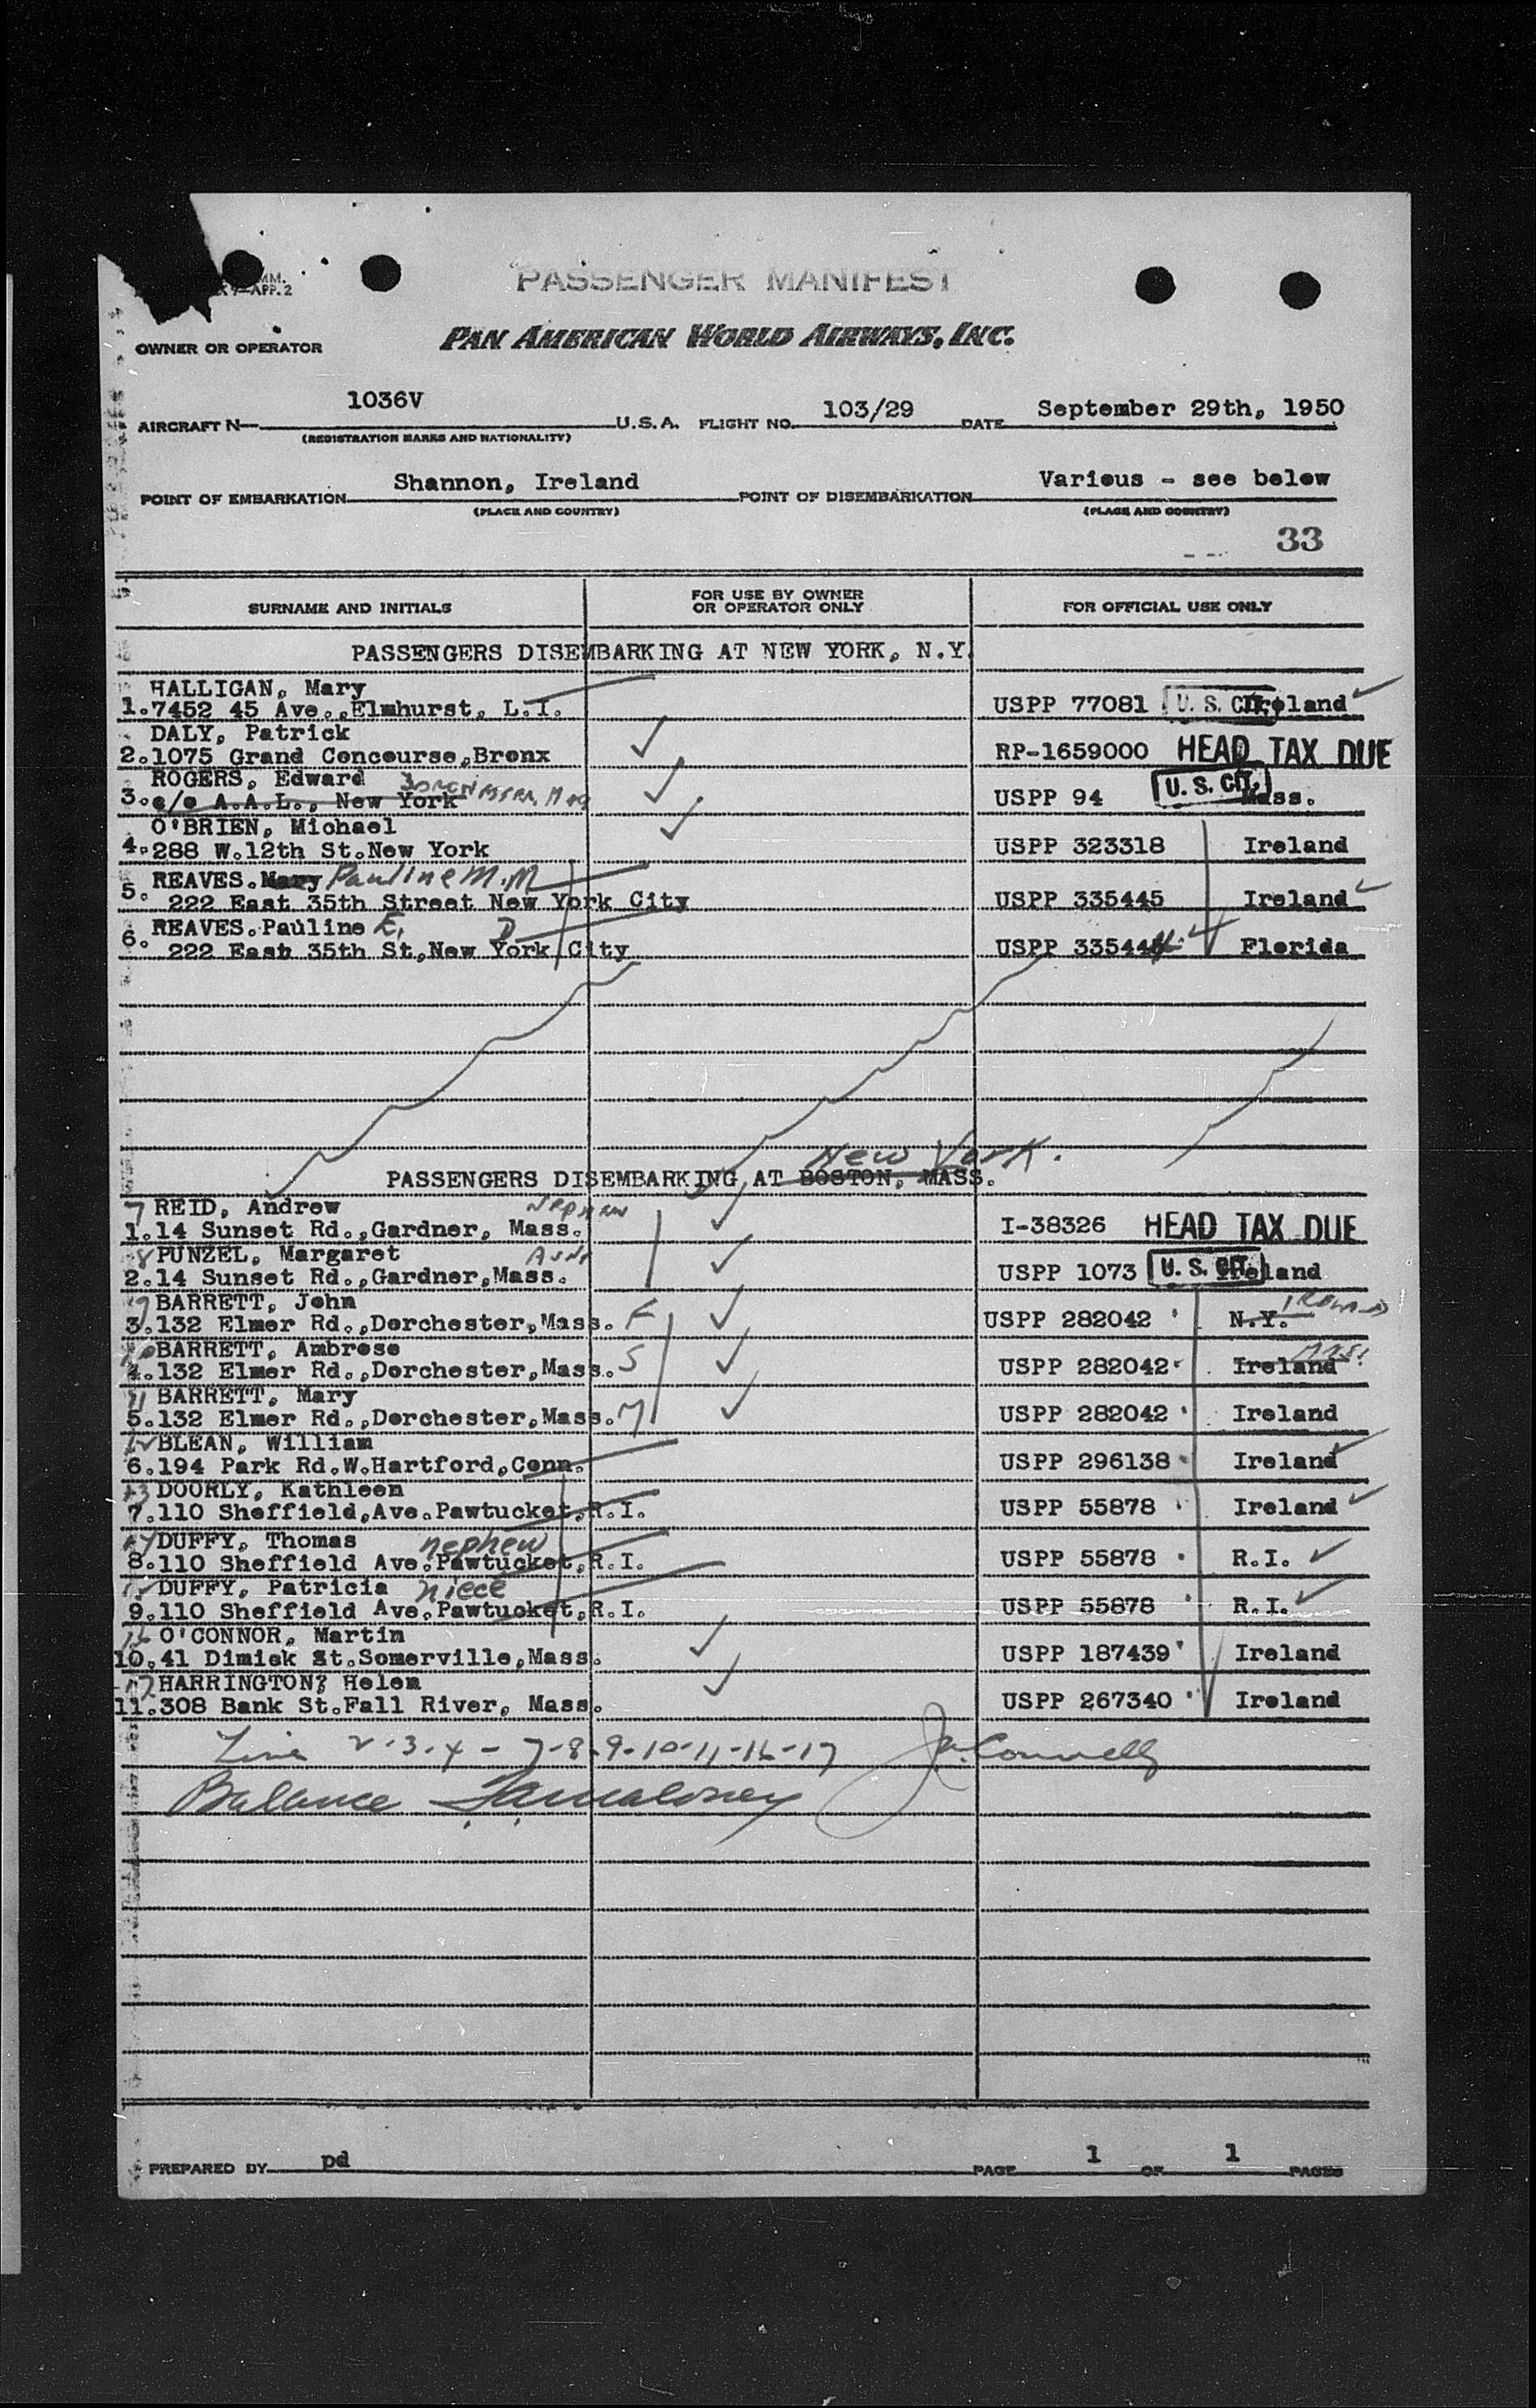 MM.
APP. 2
PASSENGER MANIFEST
OWNER OR OPERATOR PAN AMERICAN WORLD AIRWAYS, INC.
AIRCRAFT N 1036V U.S.A. FLIGHT NO. 103/29 DATE September 29th, 1950
(REGISTRATION MARKS AND NATIONALITY)
POINT OF EMBARKATION Shannon, Ireland POINT OF DISEMBARKATION Various - see below
(PLACE AND COUNTRY) (PLACE AND COUNTRY)
33
SURNAME AND INITIALS FOR USE BY OWNER OR OPERATOR ONLY FOR OFFICIAL USE ONLY
PASSENGERS DISEMBARKING AT NEW YORK, N.Y.
HALLIGAN, Mary
1. 7452 45 Ave., Elmhurst, L.I. USPP 77081 U. S. CIT. Ireland
DALY, Patrick
2. 1075 Grand Concourse, Bronx RP-1659000 HEAD TAX DUE
ROGERS, Edward Dorchester, Mass
3. c/o A.A.L., New York USPP 94 U. S. CIT. Mass.
O'BRIEN, Michael
4. 288 W. 12th St. New York USPP 323318 Ireland
REAVES. Mary Pauline M. M
5. 222 East 35th Street New York City USPP 335445 Ireland
REAVES. Pauline E. D
6. 222 East 35th St, New York City USPP 335444 Florida
New York.
PASSENGERS DISEMBARKING AT BOSTON, MASS.
7 REID, Andrew Nephew
1. 14 Sunset Rd., Gardner, Mass. I-38326 HEAD TAX DUE
8 PUNZEL, Margaret Aunt
2. 14 Sunset Rd., Gardner, Mass. USPP 1073 U. S. CIT. Ireland
9 BARRETT, John
3. 132 Elmer Rd., Dorchester, Mass. F USPP 282042 N.Y. Ireland
10 BARRETT, Ambrose
4. 132 Elmer Rd., Dorchester, Mass. S USPP 282042 Ireland Mass
11 BARRETT, Mary
5. 132 Elmer Rd., Dorchester, Mass. M USPP 282042 Ireland
12 BLEAN, William
6. 194 Park Rd. W. Hartford, Conn. USPP 296138 Ireland
13 DOORLY, Kathleen
7. 110 Sheffield, Ave. Pawtucket, R.I. USPP 55878 Ireland
14 DUFFY, Thomas nephew
8. 110 Sheffield Ave. Pawtucket, R.I. USPP 55878 R.I.
15 DUFFY, Patricia niece
9. 110 Sheffield Ave. Pawtucket, R.I. USPP 55878 R.I.
16 O'CONNOR, Martin
10. 41 Dimick St. Somerville, Mass. USPP 187439 Ireland
17 HARRINGTON, Helen
11. 308 Bank St. Fall River, Mass. USPP 267340 Ireland
Line 2-3-4-7-8-9-10-11-16-17 Connelly
Balance
PREPARED BY pd PAGE 1 OF 1 PAGES